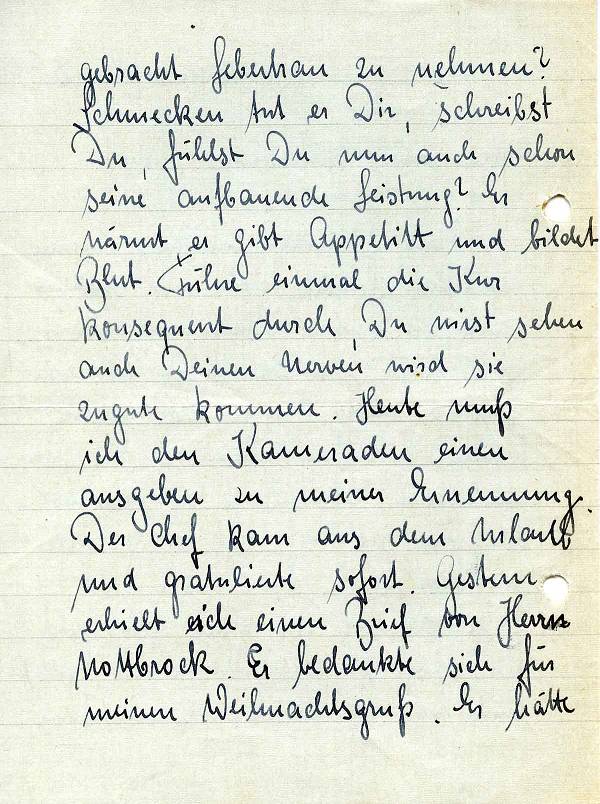 gebracht Lebertran zu nehmen?
Schmecken tut er Dir, schreibst
Du, fühlst Du nun auch schon
seine aufbauende Leistung? Er
wärmt, er gibt Appetitt und bildet
Blut. Führe einmal die Kur
konsequent durch, Du wirst sehen
auch Deinen Nerven wird sie
zugute kommen. Heute muß
ich den Kameraden einen
ausgeben zu meiner Ernennung.
Der Chef kam aus dem Urlaub
und gratulierte sofort. Gestern
erhielt ich einen Brief von Herrn
Nottbrock. Er bedankte sich für
meinen Weihnachtsgruß. Er hätte